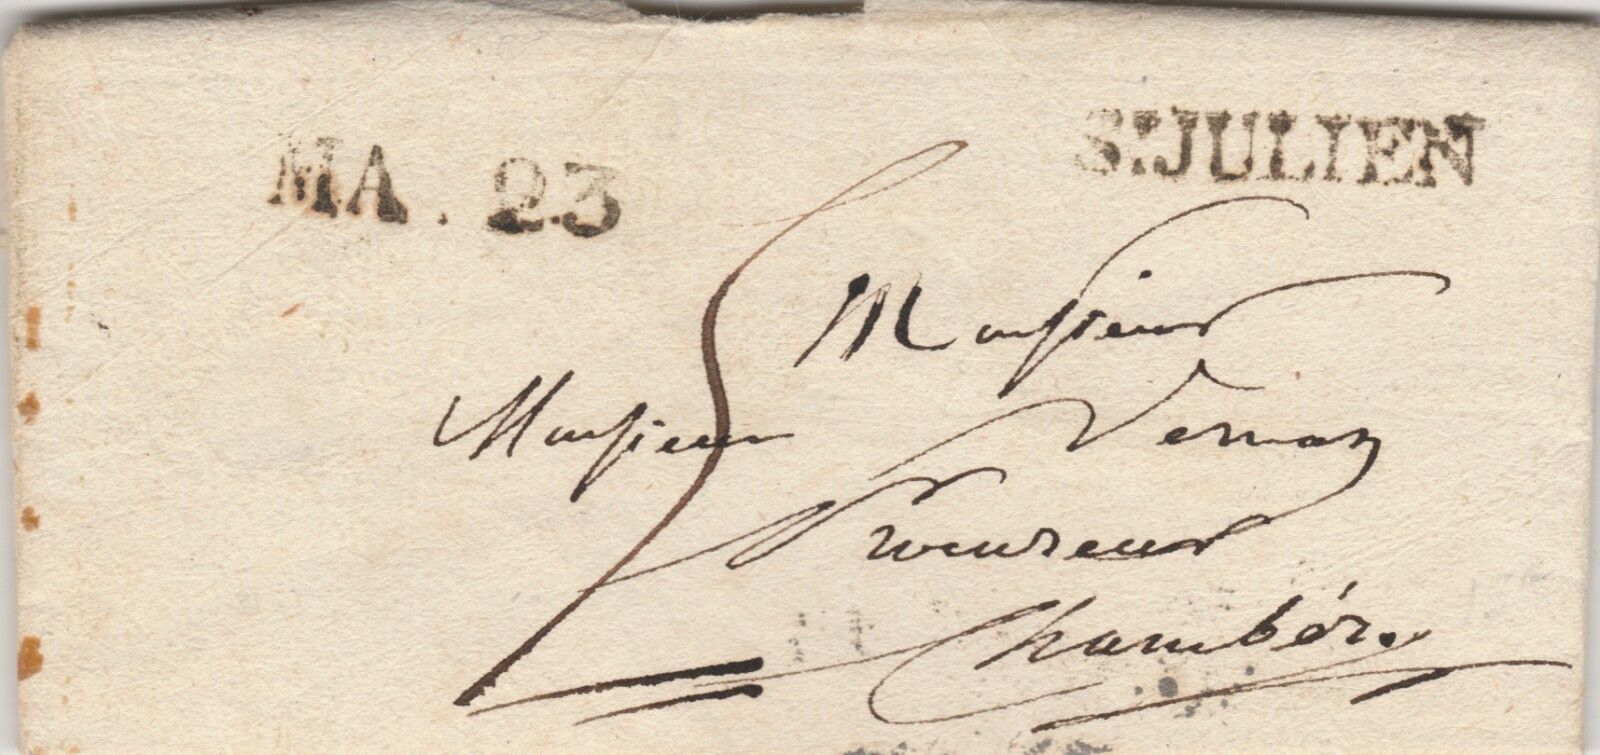 MA . 23
St JULIEN
Monsieur
Monsieur Vernaz
Procureur
Chambér.